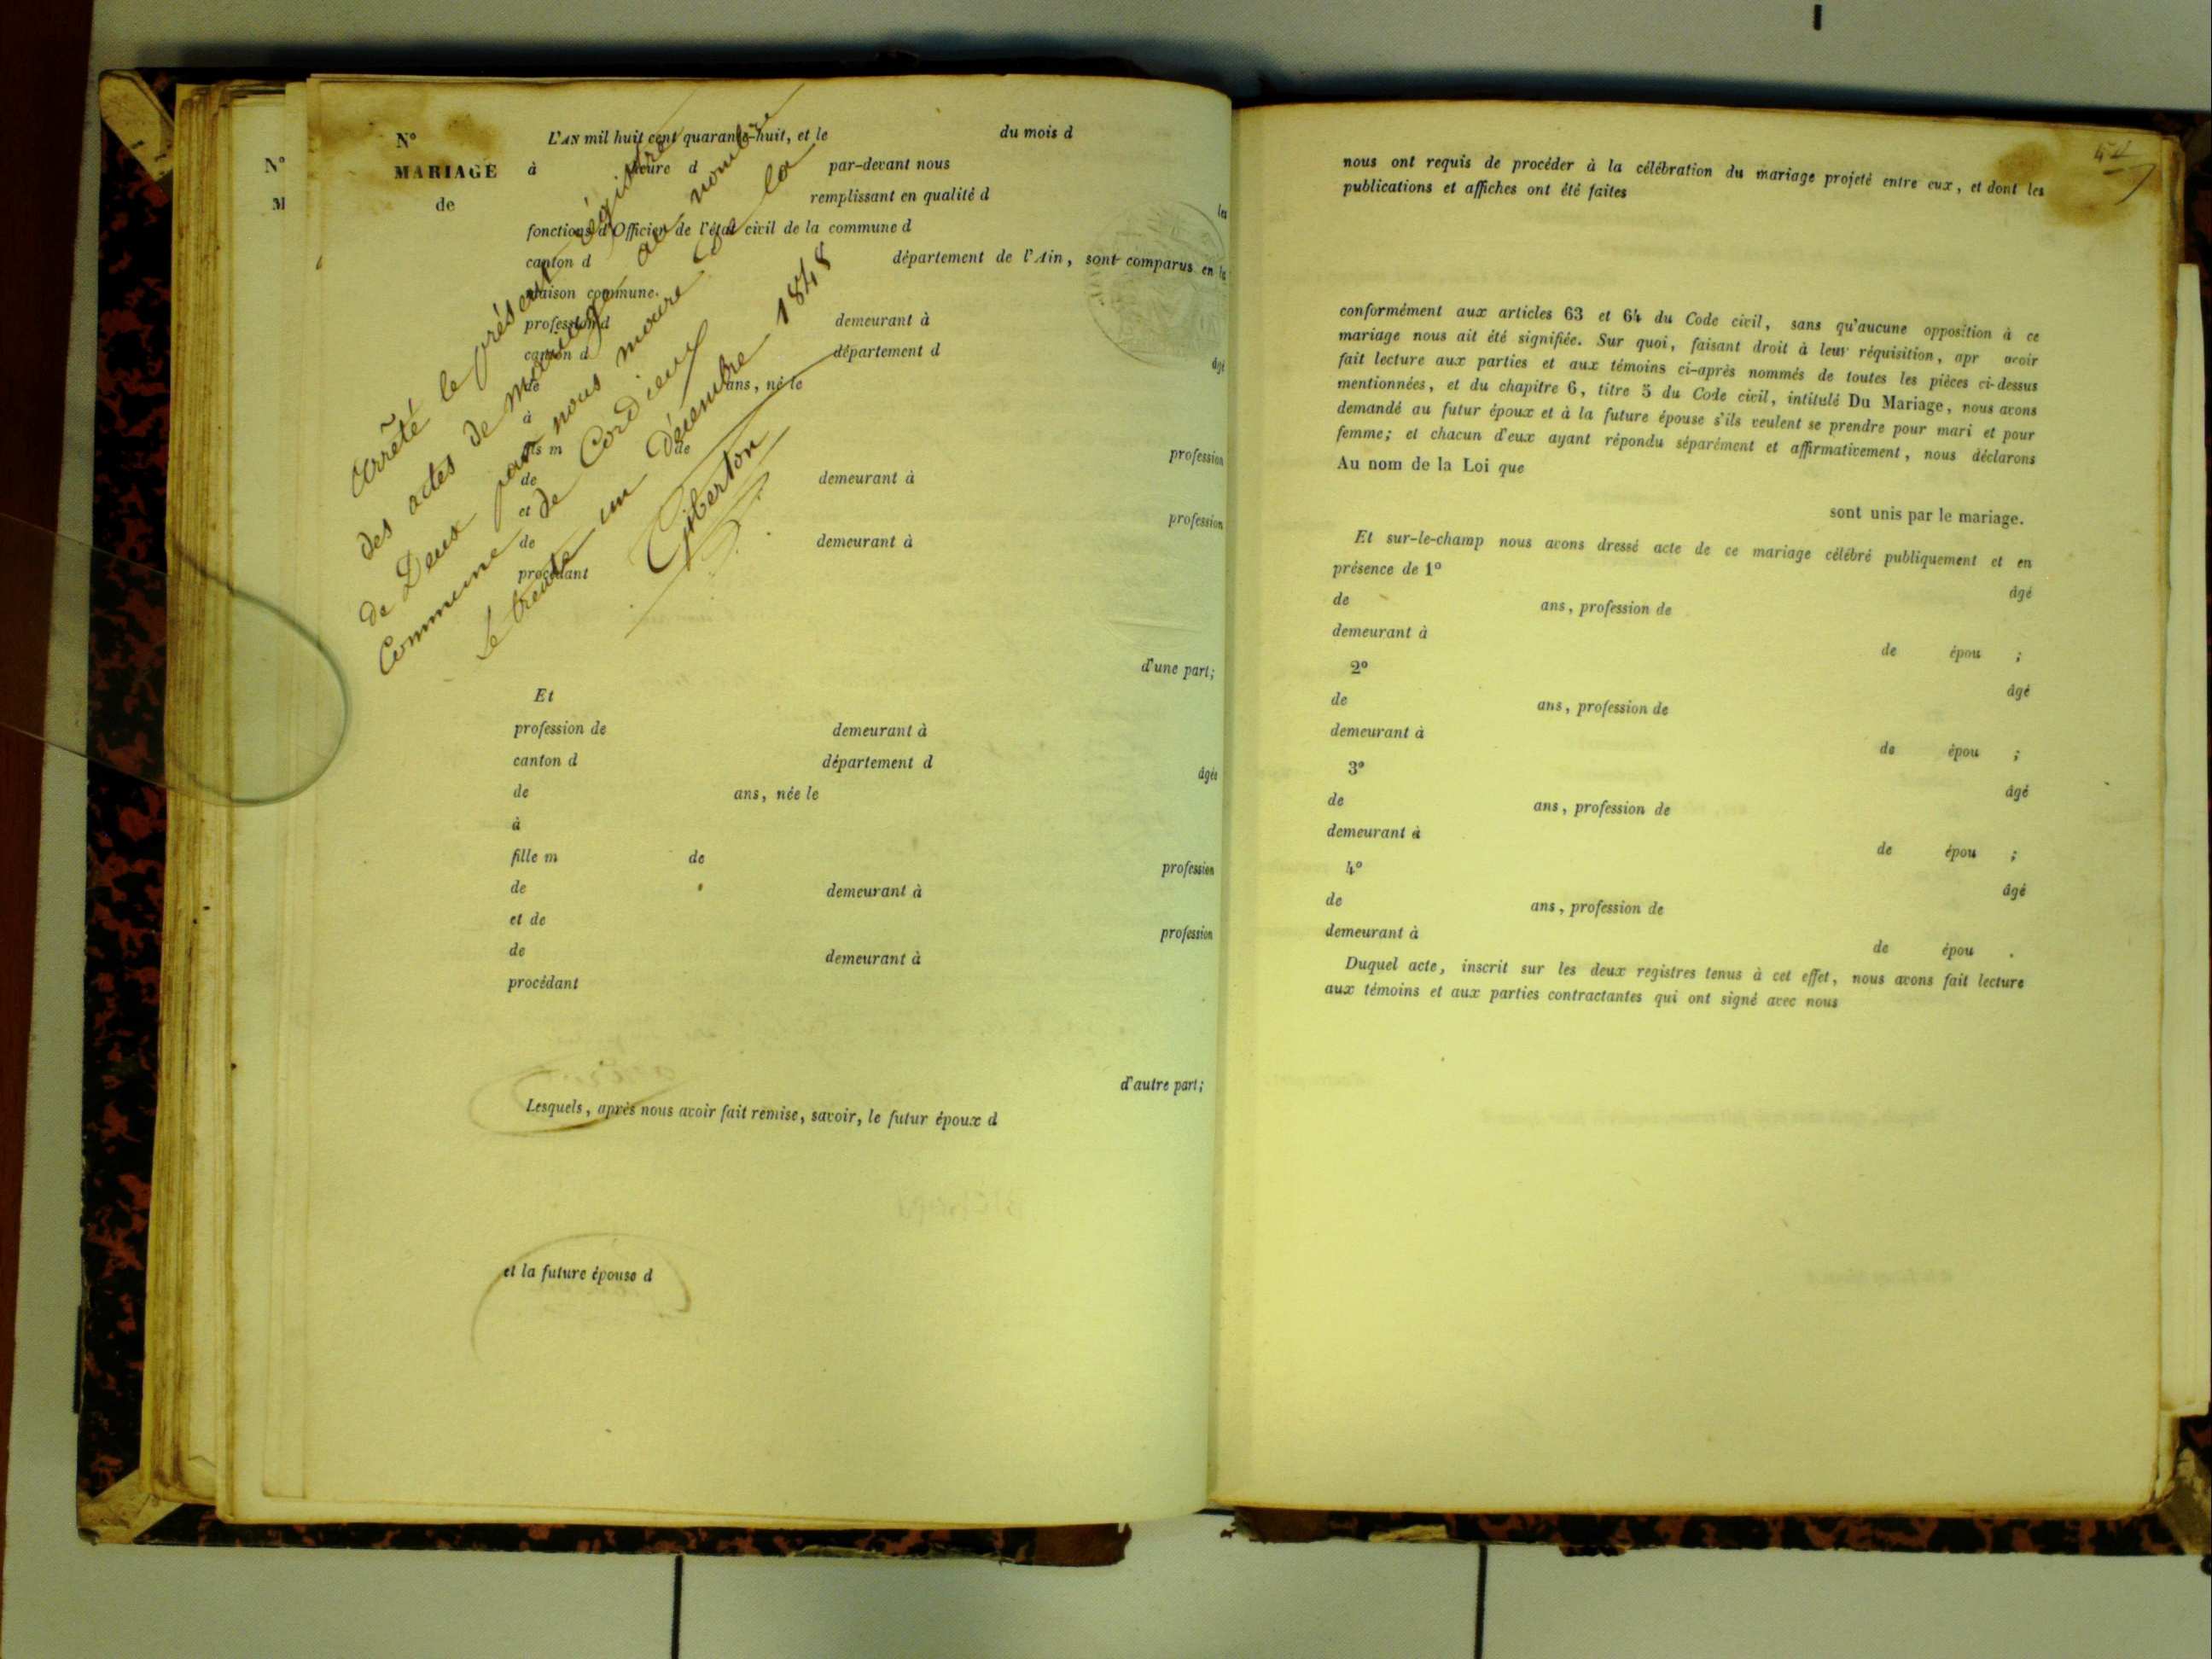 N°
M
N°
MARIAGE
de
L'AN mil huit cent quarante-huit, et le du mois d
à heure d par-devant nous
remplissant en qualité d les
fonctions d'Officier de l'état civil de la commune d
canton d département de l'Ain, sont comparus en la
maison commune.
profession d demeurant à
canton d département d âgé
de ans, né le
à
fils m de profession
de demeurant à
et profession
de demeurant à
procédant
d'une part;
Arrêté le présent régistre
des actes de mariage au nombre
de Deux par nous maire de la
Commune de Cordieux
le trente un Décembre 1848
Giberton
Et
profession de demeurant à
canton d département d âgée
de ans, née le
à
fille m de profession
de demeurant à
et de profession
de demeurant à
procédant
d'autre part;
Lesquels, après nous avoir fait remise, savoir, le futur époux d
et la future épouse d
nous ont requis de procéder à la célébration du mariage projeté entre eux, et dont les
publications et affiches ont été faites
conformément aux articles 63 et 64 du Code civil, sans qu'aucune opposition à ce
mariage nous ait été signifiée. Sur quoi, faisant droit à leur réquisition, apr avoir
fait lecture aux parties et aux témoins ci-après nommés de toutes les pièces ci-dessus
mentionnées, et du chapitre 6, titre 5 du Code civil, intitulé Du Mariage, nous avons
demandé au futur époux et à la future épouse s'ils veulent se prendre pour mari et pour
femme; et chacun d'eux ayant répondu séparément et affirmativement, nous déclarons
Au nom de la Loi que
sont unis par le mariage.
Et sur-le-champ nous avons dressé acte de ce mariage célébré publiquement et en
présence de 1° âgé
de ans, profession de
demeurant à de épou ;
2° âgé
de ans, profession de
demeurant à de épou ;
3° âgé
de ans, profession de
demeurant à de épou ;
4° âgé
de ans, profession de
demeurant à de épou .
Duquel acte, inscrit sur les deux registres tenus à cet effet, nous avons fait lecture
aux témoins et aux parties contractantes qui ont signé avec nous